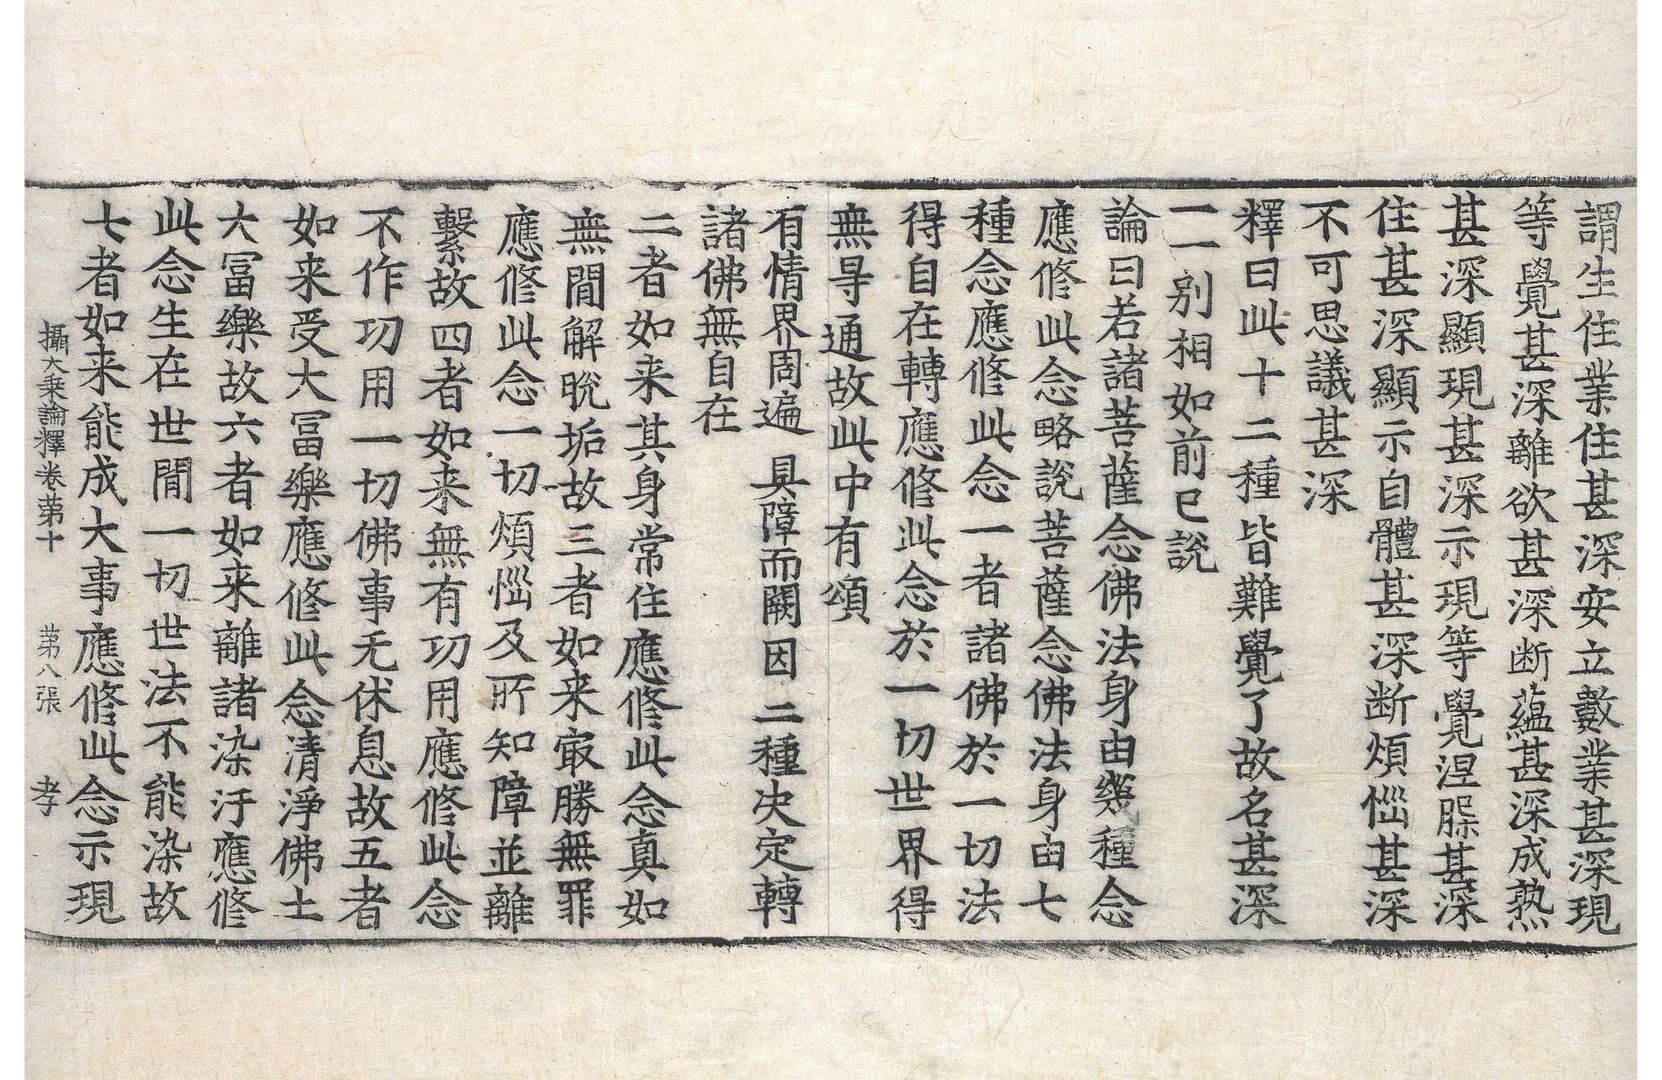 謂生住業住甚深安立數業甚深現
等覺甚深離欲甚深断蘊甚深成熟
甚深顯現甚深示現等覺涅槃甚深
住甚深顯示自體甚深断煩惱甚深
不可思議甚深
釋曰此十二種皆難覺了故名甚深
一一别相如前已説
論曰若諸菩薩念佛法身由幾種念
應修此念略説菩薩念佛法身由七
種念應修此念一者諸佛於一切法
得自在轉應修此念於一切世界得
無㝵通故此中有頌
有情界周遍 具障而闕因 二種决定轉
諸佛無自在
二者如来其身常住應修此念真如
無間解脱垢故三者如来㝡勝無罪
應修此念一切煩惱及所知障並離
繫故四者如来無有功用應修此念
不作功用一切佛事无休息故五者
如来受大冨樂應修此念清淨佛土
大冨樂故六者如来離諸染汙應修
此念生在世間一切世法不能染故
攝大乗論釋卷苐十 苐八張 孝
七者如来能成大事應修此念示現